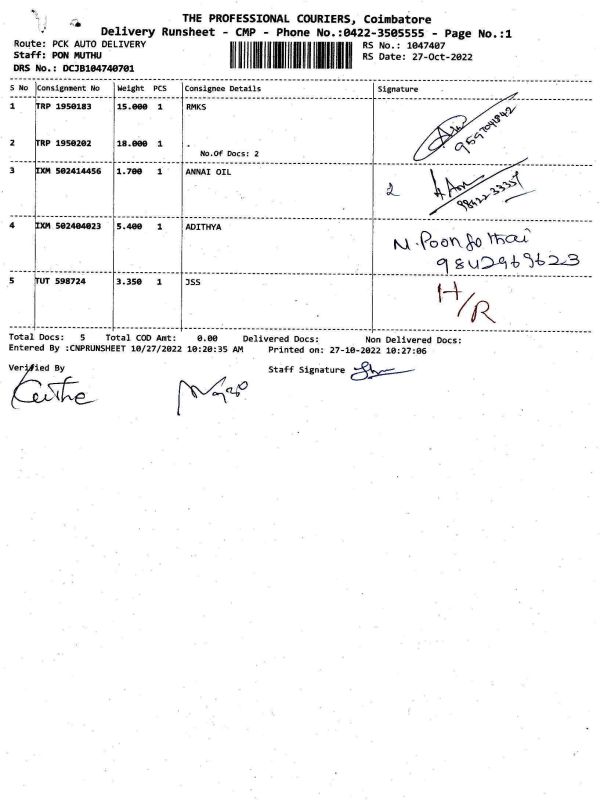 THE PROFESSIONAL COURIERS, Coimbatore
Delivery Runsheet - CMP - Phone No.:0422-3505555 - Page No.:1
Route: PCK AUTO DELIVERY
RS No.: 1047407
Staff: PON MUTHU
RS Date: 27-Oct-2022
DRS No.: DCJB104740701
S No Consignment No Weight PCS Consignee Details Signature
1 TRP 1950183 15.000 1 RMKS
2 TRP 1950202 18.000 1 .
No.Of Docs: 2
3 IXM 502414456 1.700 1 ANNAI OIL 2
4 IXM 502404023 5.400 1 ADITHYA
9842969623
5 TUT 598724 3.350 1 JSS H/R
Total Docs: 5 Total COD Amt: 0.00 Delivered Docs: Non Delivered Docs:
Entered By :CNPRUNSHEET 10/27/2022 10:20:35 AM Printed on: 27-10-2022 10:27:06
Verified By
Staff Signature